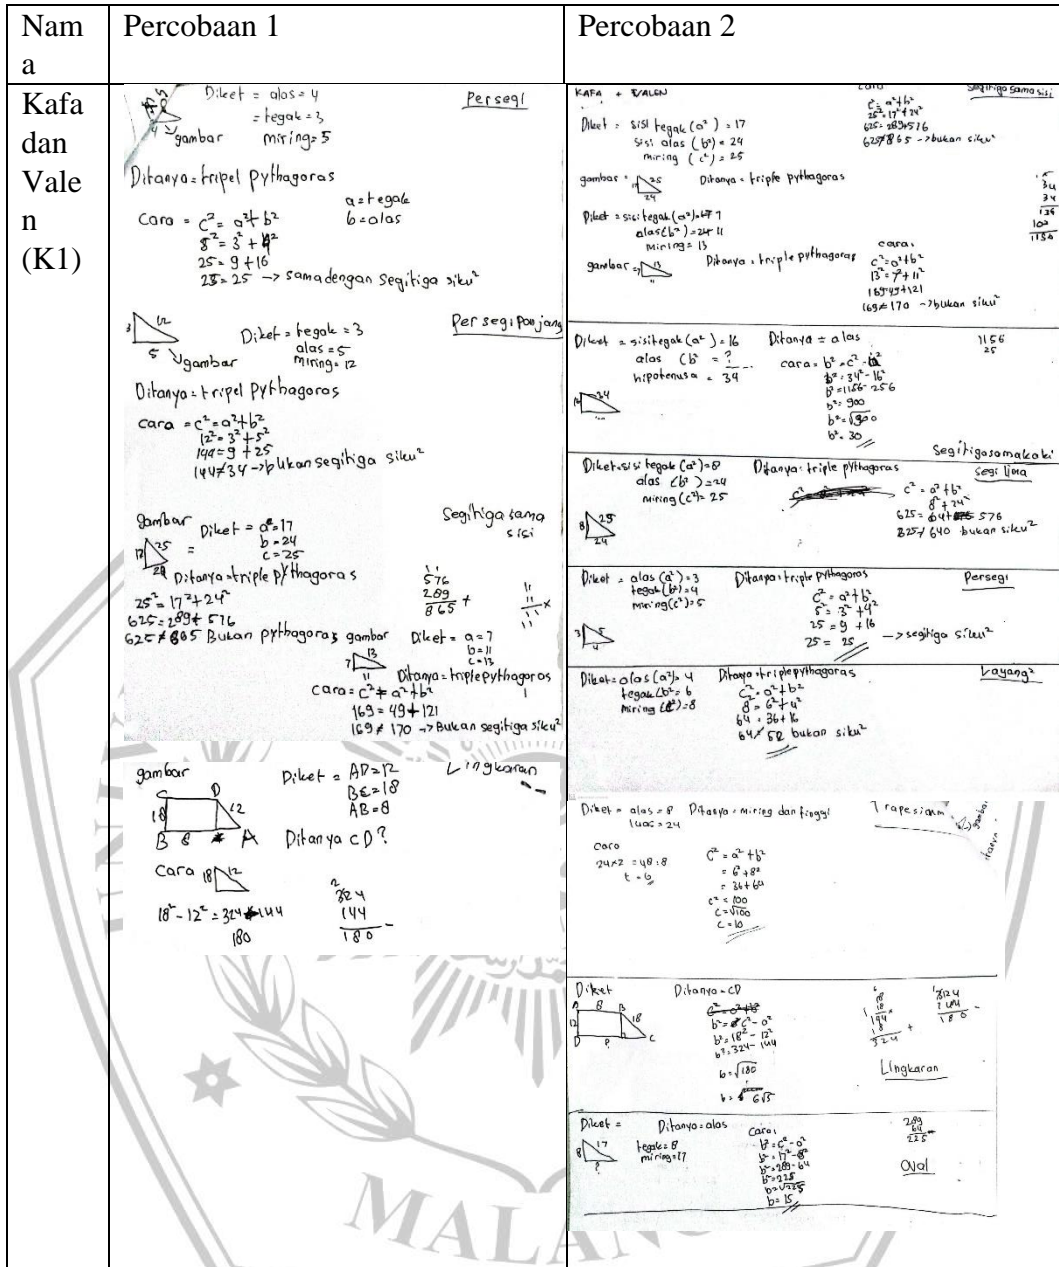 Nam
a
Percobaan 1
Percobaan 2
Kafa
dan
Vale
n
(K1)
Diket = alas = 4
= tegak = 3
miring = 5
Persegi
4
gambar
Ditanya = tripel pythagoras
a = tegak
b = alas
Cara = c² = a² + b²
5² = 3² + 4²
25 = 9 + 16
25 = 25 -> sama dengan segitiga siku²
3
12
5
gambar
Diket = tegak = 3
alas = 5
miring = 12
Persegi Panjang
Ditanya = tripel pythagoras
cara = c² = a² + b²
12² = 3² + 5²
144 = 9 + 25
144 ≠ 34 -> bukan segitiga siku²
gambar
17
25
24
Diket = a = 17
b = 24
c = 25
Segitiga sama
sisi
Ditanya = triple pythagoras
25² = 17² + 24²
625 = 289 + 576
625 ≠ 865 Bukan pythagoras
576
289
865 +
11
11 x
11
11
gambar
7
13
11
Diket = a = 7
b = 11
c = 13
Ditanya = triple pythagoras
cara = c² ≠ a² + b²
169 = 49 + 121
169 ≠ 170 -> Bukan segitiga siku²
gambar
C D
18 12
B 8 A
Diket = AD = 12
BC = 18
AB = 8
Lingkaran
Ditanya CD?
Cara
18 12
18² - 12² = 324 - 144
180
324
144
180 -
KAFA + VALEN
Segitiga sama sisi
Diket = sisi tegak (a²) = 17
sisi alas (b²) = 24
miring (c²) = 25
cara
c² = a² + b²
25² = 17² + 24²
625 = 289 + 576
625 ≠ 865 -> bukan siku²
gambar =
25
24
Ditanya = triple pythagoras
34
34
136
102
1156
Diket = sisi tegak (a²) = 7
alas (b²) = 11
Miring = 13
gambar =
13
11
Ditanya = triple pythagoras
cara:
c² = a² + b²
13² = 7² + 11²
169 = 49 + 121
169 ≠ 170 -> bukan siku²
Diket = sisi tegak (a²) = 16
alas (b² = ?
hipotenusa = 34
34
Ditanya = alas
cara = b² = c² - a²
b² = 34² - 16²
b² = 1156 - 256
b² = 900
b² = √900
b² = 30
1156
25
Segitiga samakaki
Segi lima
Diket = sisi tegak (a²) = 8
alas (b²) = 24
miring (c²) = 25
8
25
24
Ditanya = triple pythagoras
c² = a² + b²
8² + 24²
625 = 64 + 576
625 ≠ 640 bukan siku²
Diket = alas (a²) = 3
tegak (b²) = 4
miring (c²) = 5
3
5
4
Ditanya = triple pythagoras
c² = a² + b²
5² = 3² + 4²
25 = 9 + 16
25 = 25 -> segitiga siku²
Persegi
Diket = alas (a²) = 4
tegak (b²) = 6
Miring (c²) = 8
Ditanya = triple pythagoras
c² = a² + b²
8² = 6² + 4²
64 = 36 + 16
64 ≠ 52 bukan siku²
Layang²
Diket = alas = 8
luas = 24
Ditanya = miring dan tinggi
Trapesium
gambar
Cara
24 x 2 = 48 : 8
t = 6
c² = a² + b²
= 6² + 8²
= 36 + 64
c² = 100
c = √100
c = 10
Diket
A 8 B
12 18
D ? C
Ditanya = CD
c² = a² + b²
b² = c² - a²
b² = 18² - 12²
b² = 324 - 144
b = √180
b = 6√5
324
144
180 -
Lingkaran
Diket =
8
17
?
tegak = 8
miring = 17
Ditanya = alas
Cara:
b² = c² - a²
b² = 17² - 8²
b² = 289 - 64
b² = 225
b = √225
b = 15
289
64
225
Oval
MALAN